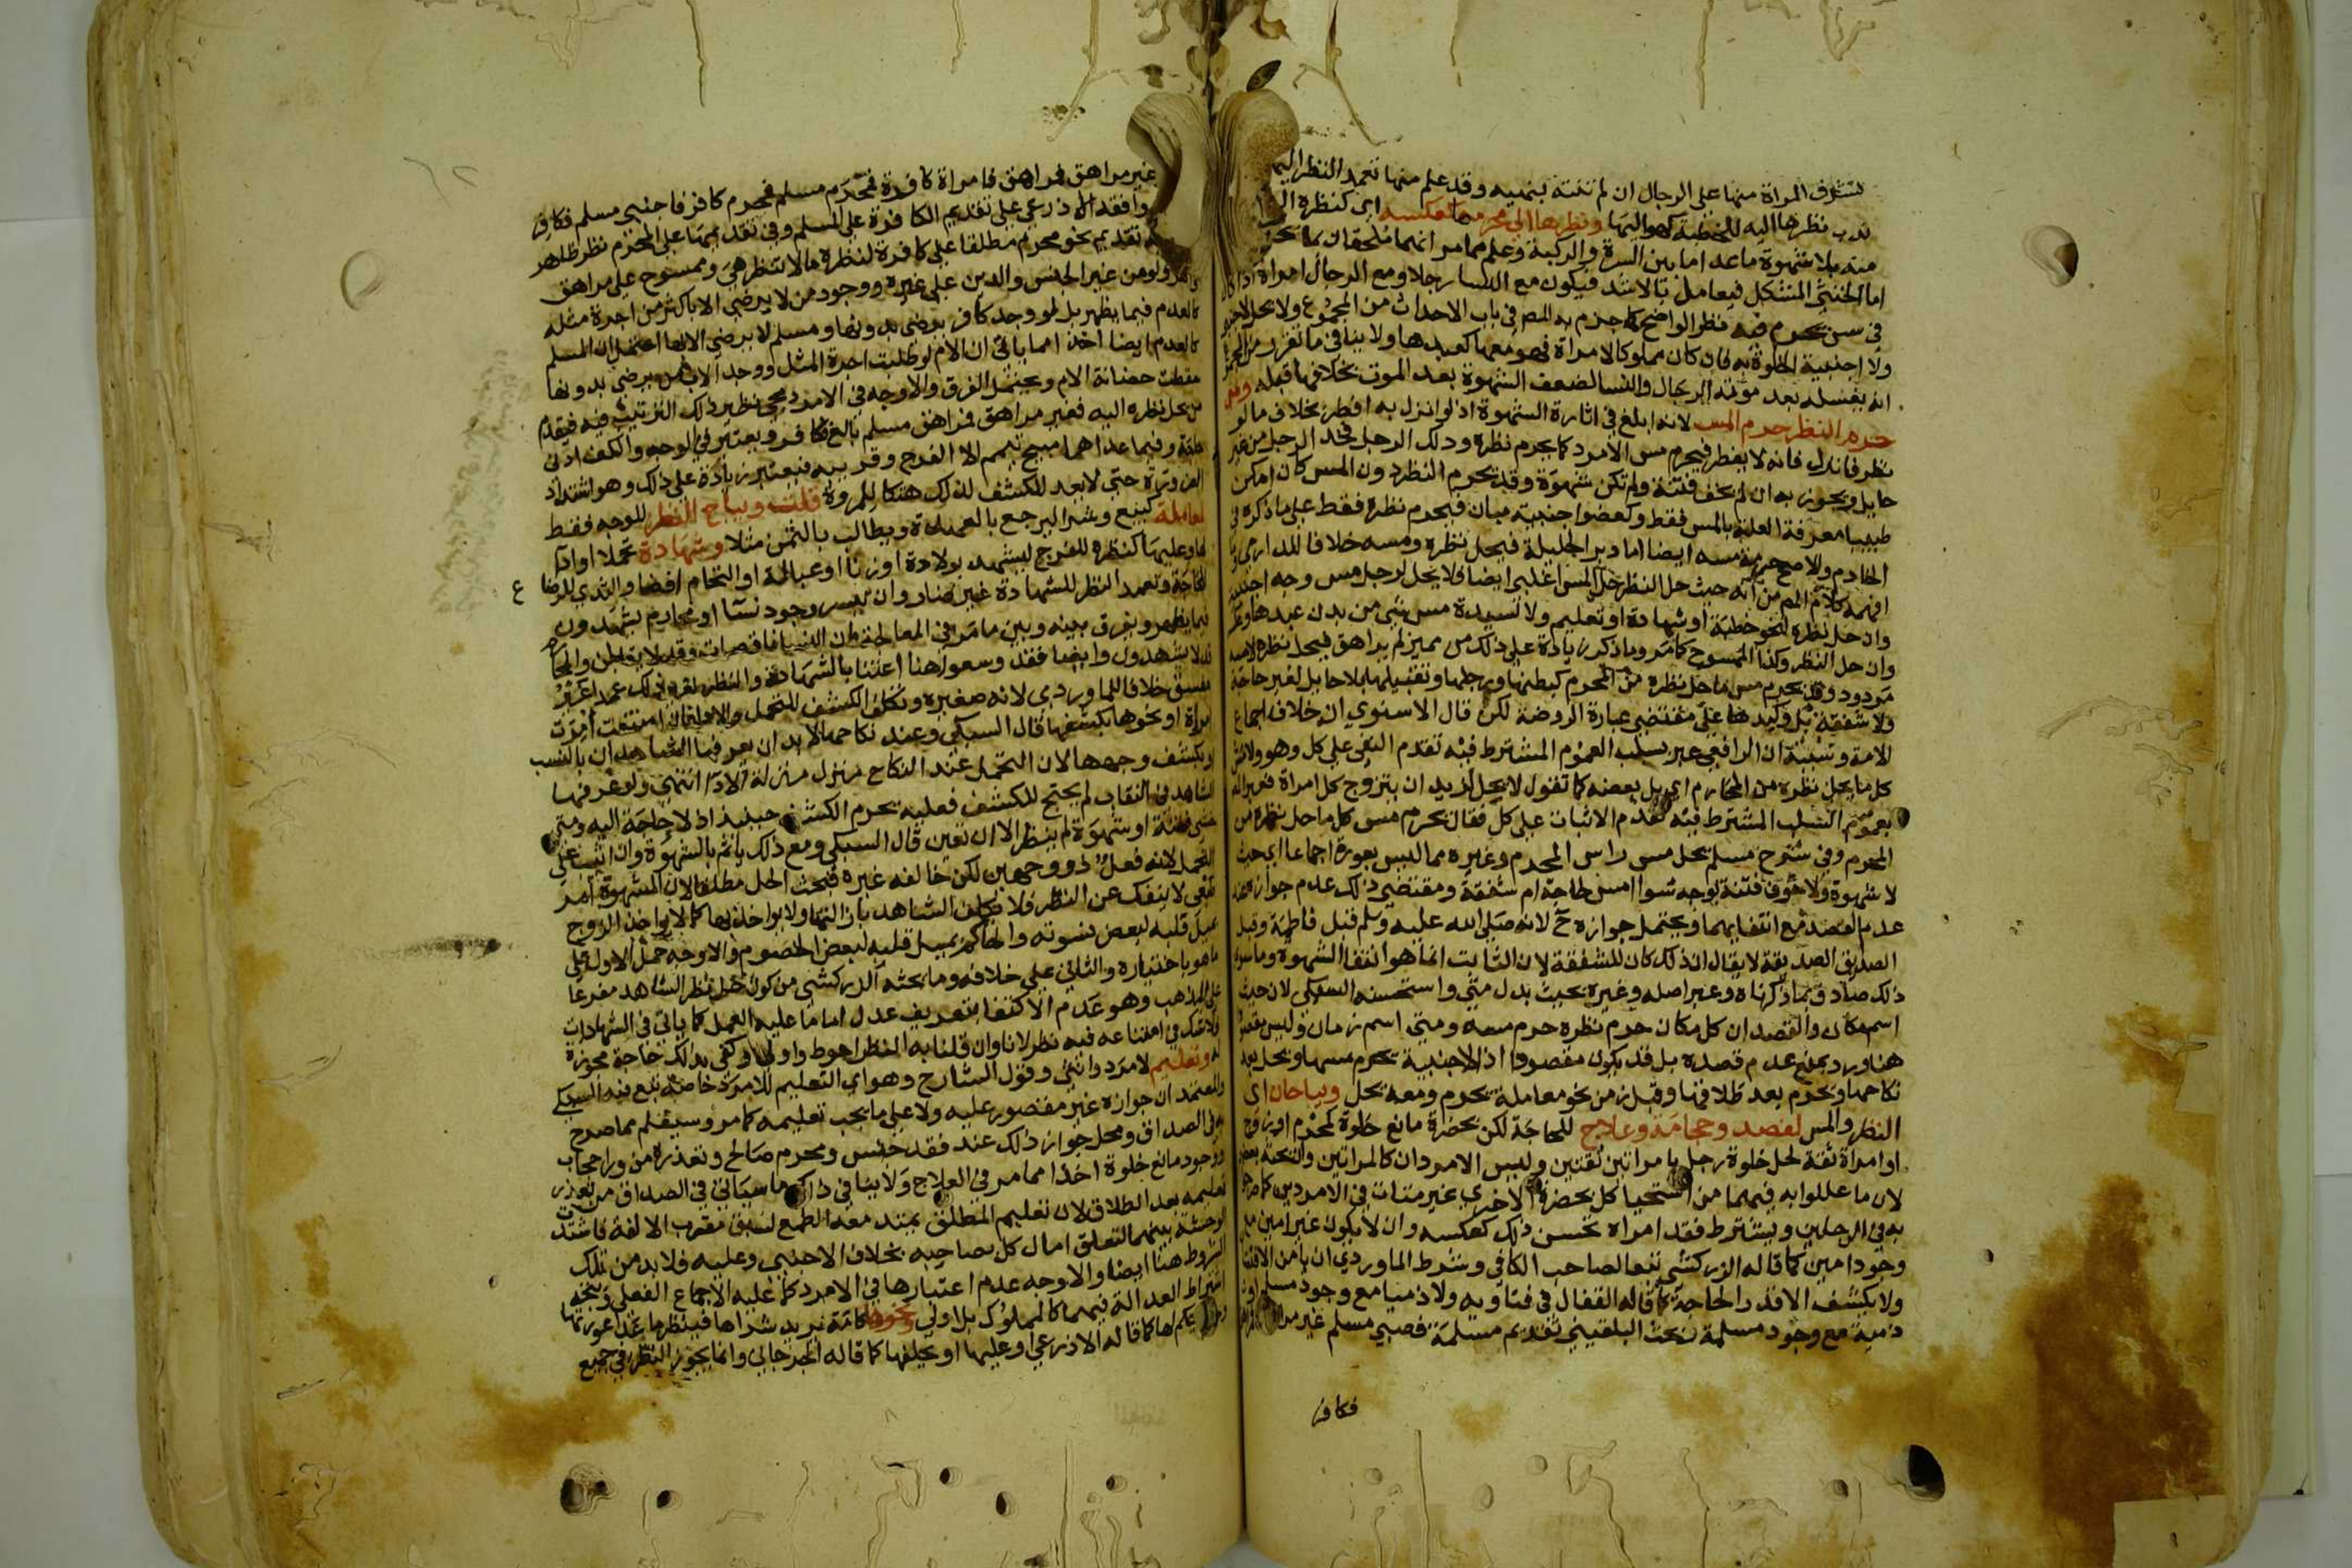 تستشرف المراة منها على الرجال ان لم تنته بنهيه وقد علم منها تعمد النظر اليه
ندب نظرها اليه للخطبة كهو اليها ونظرها الى محرمها كعكسه اي كنظره اليها
منه بلا شهوة ماعدا ما بين السرة والركبة وعلم مما مر انهما ملحقان بما
اما الخنثى المشكل فيعامل بالاشد فيكون مع النسا رجلا ومع الرجال امراة اذا كان
في سن يحرم فيه نظر الواضح كما جزم به المص في باب الاحداث من المجموع ولا يحل لاجنبي
ولا اجنبية الخلوة به فان كان مملوكا لامراة فهو معها كعبدها ولا ينافي ما تقرر
انه يغسله بعد موته الرجال والنسا لضعف الشهوة بعد الموت بخلافها قبله ومتى
حرم النظر حرم المس لانه ابلغ في اثارة الشهوة اذ لو انزل به افطر بخلاف ما لو
نظر فانزل فانه لا يفطر فيحرم مس الامرد كما يحرم نظره ودلك الرجل فخذ الرجل من غير
حايل ويجوز به ان لم يخف فتنة ولم تكن شهوة وقد يحرم النظر دون المس كان امكن
طبيبا معرفة العلة بالمس فقط وكعضو اجنبية مبان فيحرم نظره فقط على ما ذكره في
الخادم والاصح حرمة مسه ايضا اما دبر الحليلة فيحل نظره ومسه خلافا للدارمي وما
افهمه كلام المص من انه حيث حل النظر حل المس اغلبي ايضا فلا يحل لرجل مس وجه اجنبية
وان حل نظره لنحو خطبة او شهادة او تعليم ولا لسيدة مس شي من بدن عبدها وعكسه
وان حل النظر وكذا الممسوح كما مر وما ذكر زيادة على ذلك من مميز لم يراهق فيحل نظره لا مسه
مردود وقد يحرم مس ما حل نظره من المحرم كبطنها ورجلها وتقبيلها بلا حايل لغير حاجة
ولا شفقة بل وكيدها على مقتضى عبارة الروضة لكن قال الاسنوي انه خلاف اجماع
الامة وسببه ان الرافعي عبر بسلب العموم المشترط فيه تقدم النفي على كل وهو ولا
كل ما يحل نظره من المحارم اي بل بعضه كما تقول لا يحل لزيد ان يتزوج كل امراة فعبر
بعموم السلب المشترط فيه تقدم الاثبات على كل فقال يحرم مس كل ما حل نظره من
المحرم وفي شرح مسلم يحل مس راس المحرم وغيره مما ليس بعورة اجماعا اي حيث
لا شهوة ولا خوف فتنة بوجه سوا امس لحاجة ام شفقة ومقتضى ذلك عدم جوازه عند
عدم القصد مع انتفايهما ويحتمل جوازه ح لانه صلى الله عليه وسلم قبل فاطمة وقبل
الصديق الصديقة لا يقال ان ذلك كان للشفقة لان الثابت انما هو انتفا الشهوة وما سوى
ذلك صادق بما ذكرناه وعبر اصله وغيره بحيث بدل متى واستحسنه السبكي لان حيث
اسم مكان والقصد ان كل مكان حرم نظره حرم مسه ومتى اسم زمان وليس مقصودا
هنا ورد بمنع عدم قصده بل قد يكون مقصودا اذ الاجنبية يحرم مسها ويحل بعد
نكاحها ويحرم بعد طلاقها وقبل زمن نحو معاملة يحرم ومعه يحل ويباحان اي
النظر والمس لفصد وحجامة وعلاج للحاجة لكن بحضرة مانع خلوة كمحرم او زوج
او امراة ثقة لحل خلوة رجل بامراتين ثقتين وليس الامردان كالمراتين والتحق
لان ما عللوا به فيهما من استحيا كل بحضرة الاخرى غير متات في الامردين كما صرحوا
به في الرجلين ويشترط فقد امراة تحسن ذلك كعكسه وان لا يكون غير امين مع
وجود امين كما قاله الزركشي تبعا لصاحب الكافي وشرط الماوردي ان يامن الافتتان
ولا يكشف الا قدر الحاجة كما قاله القفال في فتاويه ولا ذميا مع وجود مسلم او
ذمية مع وجود مسلمة وبحث البلقيني تقديم مسلمة فصبي مسلم غير مراهق
فكافر
غير مراهق فمراهق فامراة كافرة فمحرم مسلم فمحرم كافر فاجنبي مسلم فكافر
ووافقه الاذرعي على تقديم الكافرة على المسلم وفي تقديمها على المحرم نظر ظاهر
تقديم نحو محرم مطلقا على كافرة لنظره ما لا تنظر هي وممسوح على مراهق
ولو من غير الجنس والدين على غيره ووجود من لا يرضى الا باكثر من اجرة مثله
كالعدم فيما يظهر بل لو وجد كافر يرضى بدونها ومسلم لا يرضى الا بها احتمل ان المسلم
كالعدم ايضا اخذا مما ياتي ان الام لو طلبت اجرة المثل ووجد الاب من يرضى بدونها
سقطت حضانة الام ويحتمل الفرق والاوجه في الامرد مجي نظير ذلك الترتيب فيه فيقدم
من يحل نظره اليه فغير مراهق فمراهق مسلم بالغ فكافر ويعتبر في الوجه والكف ادنى
حاجة وفيما عداهما مبيح تيمم الا الفرج وقريبه فيعتبر زيادة على ذلك وهو اشتداد
الضرورة حتى لا يعد الكشف لذلك هتكا للمروة قلت ويباح النظر للوجه فقط
لمعاملة كبيع وشرا ليرجع بالعهدة ويطالب بالثمن مثلا وشهادة تحملا او ادا
لها وعليها كنظره للفرج ليشهد بولادة او زنا او عبالة او التحام افضا والثدي للرضاع
للحاجة وتعمد النظر للشهادة غير ضار وان تيسر وجود نسا او محارم يشهدون
فيما يظهر ويفرق بينه وبين ما مر في المعالجة بان النسا ناقصات وقد لا يقبلن والمحارم
قد لا يشهدون وايضا فقد وسعوا هنا اعتنا بالشهادة والنظر لغير ذلك عمدا غير
مفسق خلافا للماوردي لانه صغيرة وتكلف الكشف للتحمل والادا فان امتنعت امرت
امراة او نحوها بكشفها قال السبكي وعند نكاحها لا بد ان يعرفها الشاهدان بالنسب
او بكشف وجهها لان التحمل عند النكاح منزل منزلة الادا انتهى ولو عرفها
الشاهد في النقاب لم يحتج للكشف فعليه يحرم الكشف حينئذ اذ لا حاجة اليه ومتى
خشي فتنة او شهوة لم ينظر الا ان تعين قال السبكي ومع ذلك ياثم بالشهوة وان اثيب على
التحمل لانه فعل ذو وجهين لكن خالفه غيره فبحث الحل مطلقا لان الشهوة امر
طبعي لا ينفك عن النظر فلا يكلف الشاهد بازالتها ولا يواخذ بها كما لا يواخذ الزوج
بميل قلبه لبعض نسوته والحاكم بميل قلبه لبعض الخصوم والاوجه حمل الاول على
ما هو باختياره والثاني على خلافه وما بحثه الزركشي من كون حل نظر الشاهد مفرعا
على المذهب وهو عدم الاكتفا بتعريف عدل اما ما عليه العمل كما ياتي في الشهادات
فلا شك في امتناعه فيه نظر لانا وان قلنا به النظر احوط واولى وكفى بذلك حاجة مجوزة
له وتعليم لامرد وانثى وقول الشارح وهو اي التعليم للامرد خاصة تبع فيه السبكي
والمعتمد ان جوازه غير مقصور عليه ولا على ما يجب تعليمه كما مر وسيعلم مما صرح
به في الصداق ومحل جواز ذلك عند فقد جنس ومحرم صالح وتعذره من ورا حجاب
ووجود مانع خلوة اخذا مما مر في العلاج ولا ينافي ذلك ما سياتي في الصداق من تعذر
تعليمه بعد الطلاق لان تعليم المطلق يمتد معه الطمع لسبق مقرب الالفة فاشتدت
الوحشة بينهما لتعلق امال كل بصاحبه بخلاف الاجنبي وعليه فلا بد من تلك
الشروط هنا ايضا والاوجه عدم اعتبارها في الامرد كما عليه الاجماع الفعلي ويتجه
اشتراط العدالة فيهما كالمملوك بل اولى ونحوها كامة يريد شراها فينظر ما عدا عورتها
وحاكم يحكم لها كما قاله الاذرعي او عليها او يحلفها كما قاله الجرجاني وانما يجوز النظر في جميع